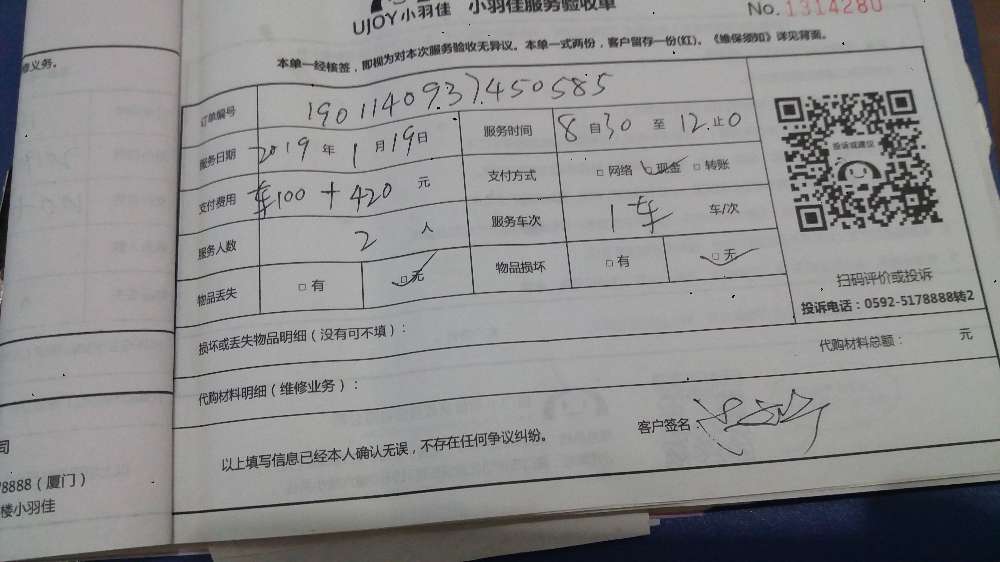 UJOY小羽佳 小羽佳服务验收单
No.1314280
本单一经核签，即视为对本次服务验收无异议。本单一式两份，客户留存一份(红)。《维保须知》详见背面。
修义务。
订单编号 1901140937450585
服务日期 2019年1月19日 服务时间 8自30至12止0
支付费用 车100+420元 支付方式 □网络 □现金 □转账
服务人数 2人 服务车次 1车 车/次
物品丢失 □有 □无 物品损坏 □有 □无
投诉或建议
扫码评价或投诉
投诉电话：0592-5178888转2
损坏或丢失物品明细（没有可不填）：
代购材料明细（维修业务）： 代购材料总额： 元
以上填写信息已经本人确认无误，不存在任何争议纠纷。 客户签名：
司
78888（厦门）
楼小羽佳